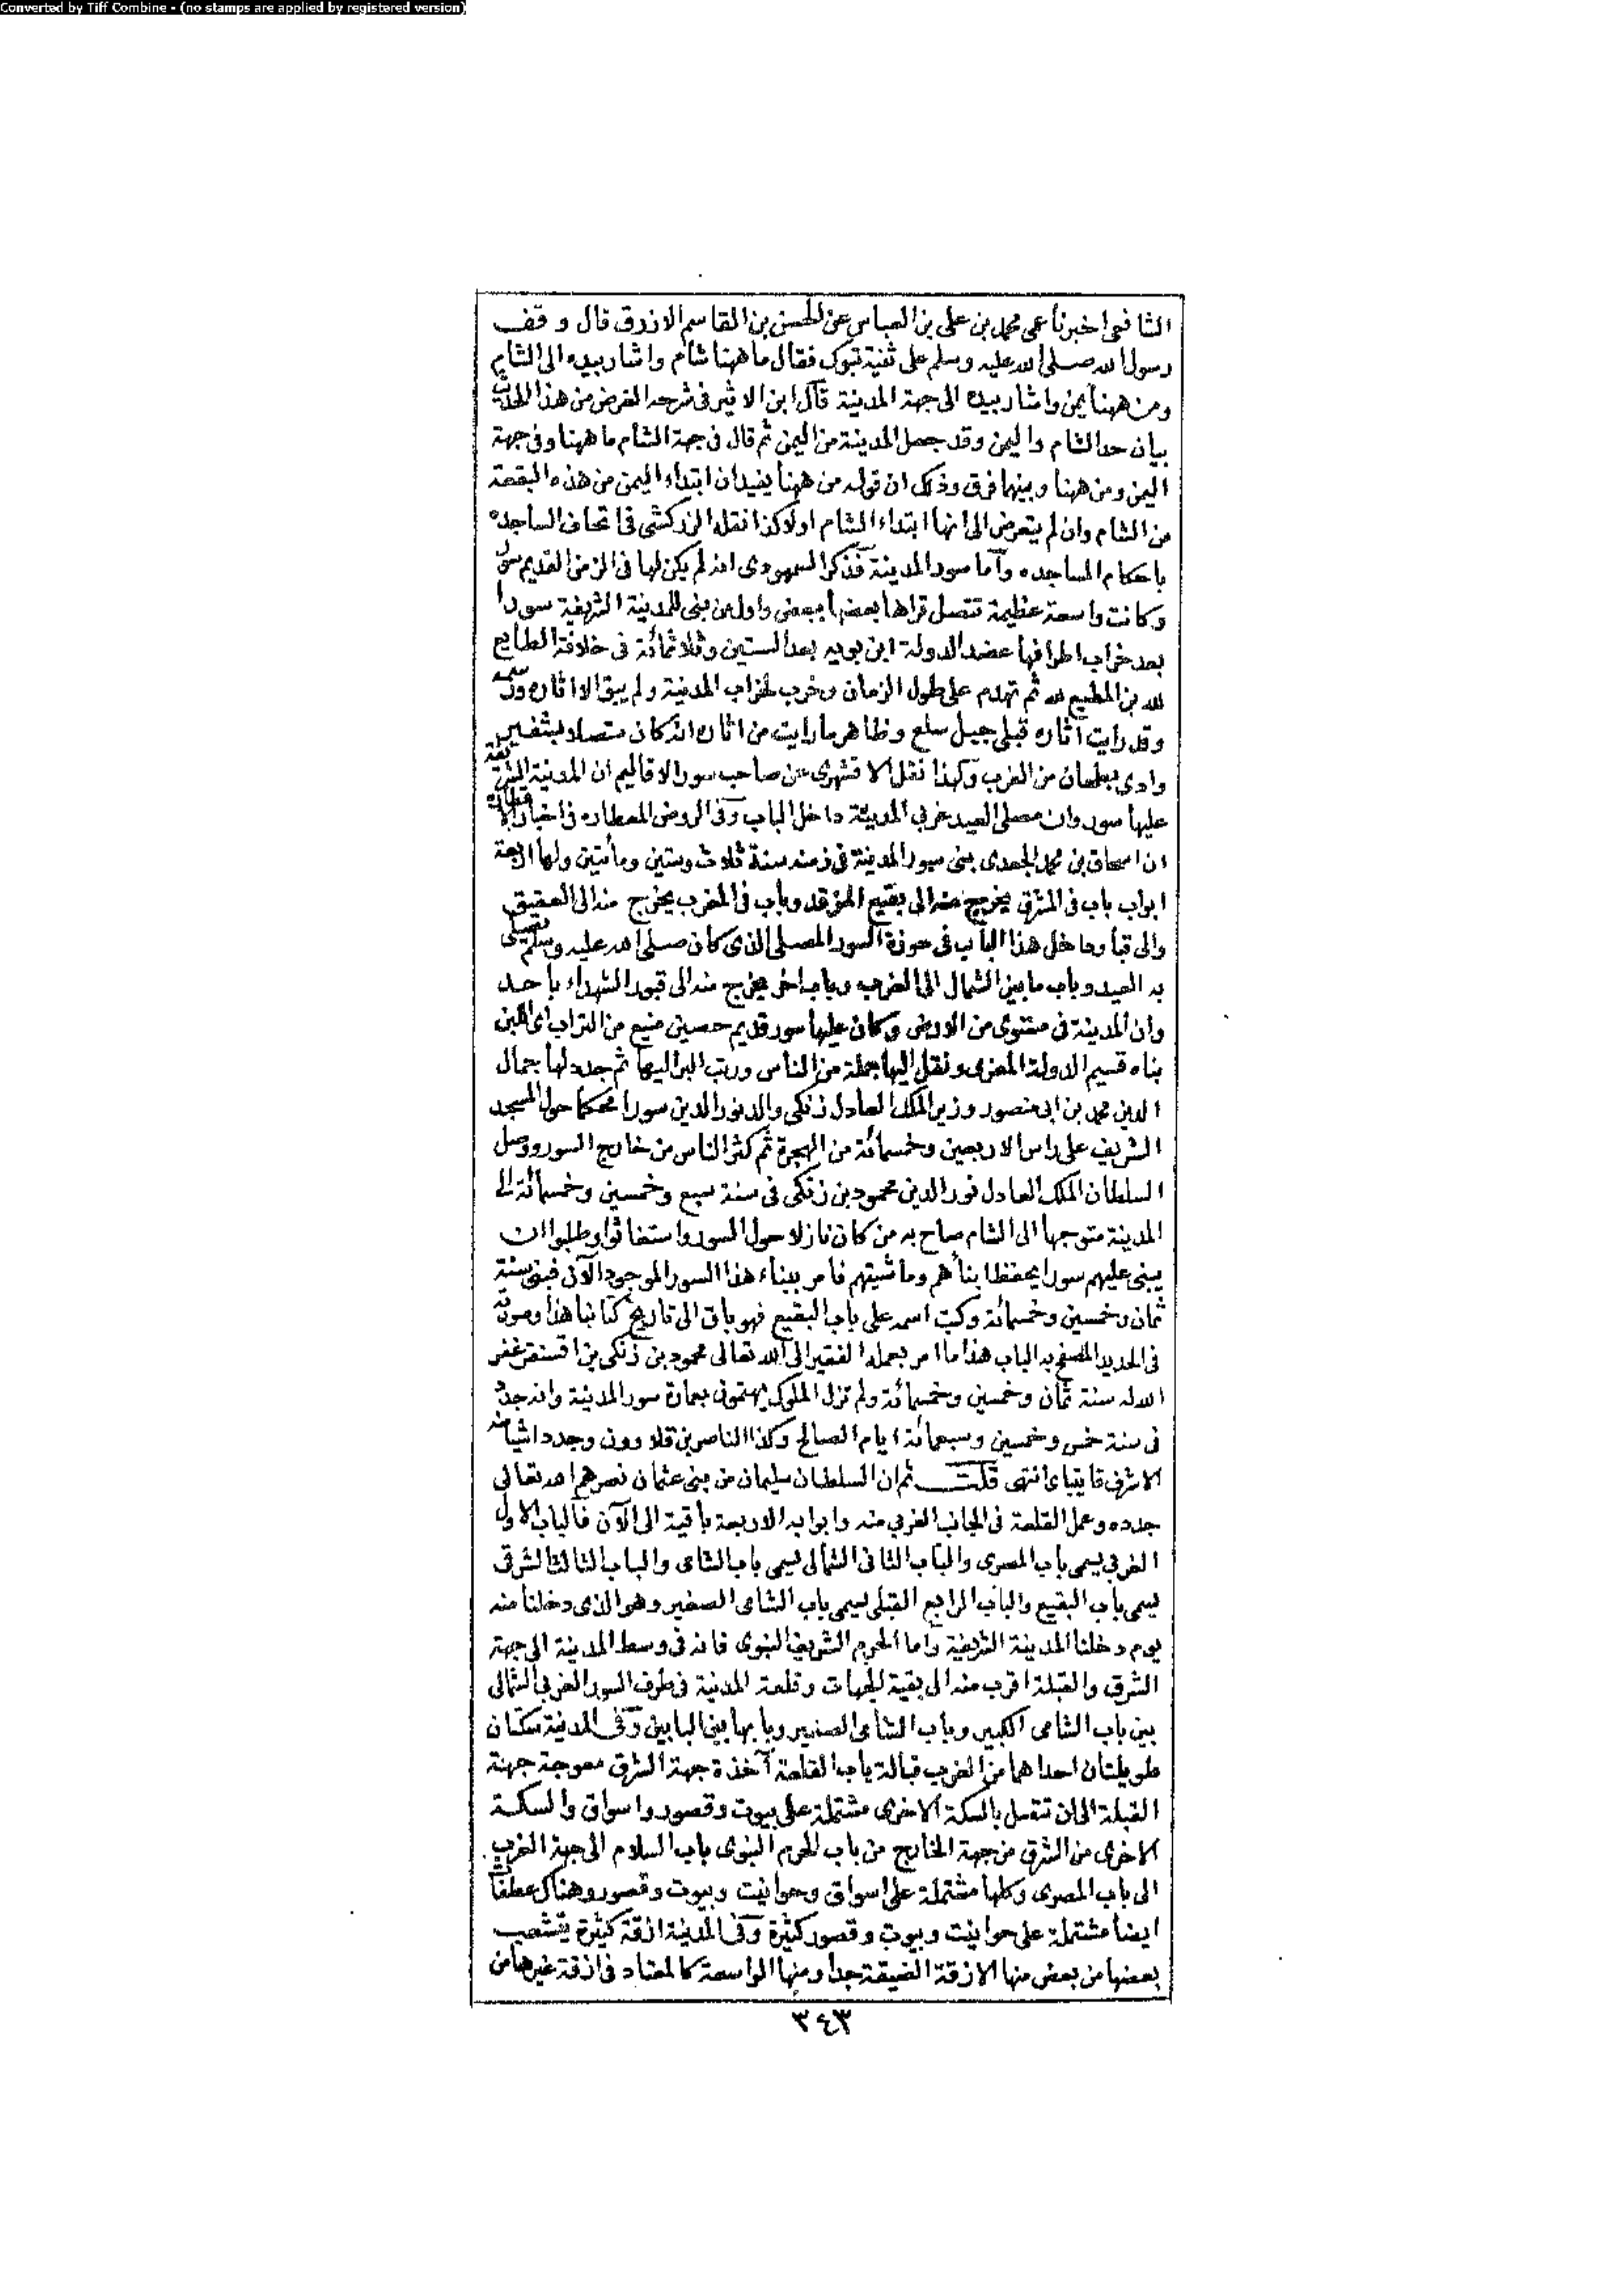 Converted by Tiff Combine - (no stamps are applied by registered version)
الشافعي اخبرنا عمى محمد بن على بن العباس عن الحسن بن القاسم الازرق قال وقف
رسول الله صلى الله عليه وسلم على ثنية تبوك فقال ما ههنا شام واشار بيده الى الشام
ومن ههنا يمن واشار بيده الى جهة المدينة قال ابن الاثير فى شرحه الغرض من هذا الحديث
بيان حد الشام واليمن وقد جعل المدينة من اليمن ثم قال فى جهة الشام ما ههنا وفى جهة
اليمن ومن ههنا وبينهما فرق وذلك ان قوله من ههنا يفيد ان ابتداء اليمن من هذه البقعة
من الشام وان لم يتعرض الى انها ابتداء الشام اولا كذا نقله الزركشى فى اتحاف الساجده
باحكام المساجده وأما سور المدينة فذكر السمهودى انه لم يكن لها فى الزمن القديم سور
وكانت واسعة عظيمة تتصل قراها بعضها ببعض واول من بنى للمدينة الشريفة سورا
بعد خراب اطرافها عضد الدولة ابن بويه بعد الستين وثلاثمائة فى خلافة الطايع
لله بن المطيع لله ثم تهدم على طول الزمان وخرب لخراب المدينة ولم يبق الا اثاره ورسمه
وقد رايت آثاره قبلى جبل سلع وظاهر ما رايت من اثاره انه كان متصلا بشفير
وادى بطحان من الغرب ولهذا نقل الاقشهرى عن صاحب سور الاقاليم ان المدينة الشريفة
عليها سور وان مصلى العيد غربي المدينة داخل الباب وفى الروض المعطاره فى اخبار الاقطاره
ان اسحاق بن محمد الجعدى بنى سور المدينة فى زمنه سنة ثلاث وستين ومأتين ولها اربعة
ابواب باب فى المشرق يخرج منه الى بقيع الغرقد وباب فى المغرب يخرج منه الى العقيق
والى قبا وداخل هذا الباب فى حوزة السور المصلى الذى كان صلى الله عليه وسلم يصلى
به العيد وباب ما بين الشمال الى الغرب وباب اخر يخرج منه الى قبور الشهداء باحد
وان المدينة فى مستوى من الارض وكان عليها سور قديم حصين منيع من التراب اى اللبن
بناه قسيم الدولة المعزى ونقل اليها جملة من الناس ورتب البر اليها ثم جدد لها جمال
الدين محمد بن ابى منصور وزير الملك العادل زنكى والد نور الدين سورا محكما حول المسجد
الشريف على راس الاربعين وخمسمائة من الهجرة ثم كثر الناس من خارج السور ووصل
السلطان الملك العادل نور الدين محمود بن زنكى فى سنة سبع وخمسين وخمسمائة الى
المدينة متوجها الى الشام صاح به من كان نازلا حول السور واستغاثوا وطلبوا ان
يبنى عليهم سورا يحفظ ابنأهم وماشيتهم فامر ببناء هذا السور الموجود الآن فبنى سنة
ثمان وخمسين وخمسمائة وكتب اسمه على باب البقيع فهو باق الى تاريخ كتابنا هذا وصورته
فى الحديد المصفح به الباب هذا ما امر بعمله الفقير الى الله تعالى محمود بن زنكى بن اقسنقر غفر
الله له سنة ثمان وخمسين وخمسمائة ولم تزل الملوك يهتمون بعمارة سور المدينة وانه جدد
فى سنة خمس وخمسين وسبعمائة ايام الصالح وكذا الناصر بن قلاوون وجدد اشيا منه
الاشرف قايتباى انتهى قلت ثم ان السلطان سليمان من بنى عثمان نصرهم الله تعالى
جدده وعمل القلعة فى الجانب الغربي منه وابوابه الاربعة باقية الى الآن فالباب الاول
الغربي يسمى باب المصرى والباب الثانى الشمالى يسمى باب الشامى والباب الثالث الشرقى
يسمى باب البقيع والباب الرابع القبلى يسمى باب الشامى الصغير وهو الذى دخلنا منه
يوم دخلنا المدينة الشريفة وأما الحرم الشريف النبوى فانه فى وسط المدينة الى جهة
الشرق والقبلة اقرب منه الى بقية الجهات وقلعة المدينة فى طرف السور الغربي الشمالى
بين باب الشامى الكبير وباب الشامى الصغير وبابها بين البابين وفى المدينة سكتان
طويلتان احداهما من الغرب قبالة باب القلعة آخذة جهة الشرق معوجة جهة
القبلة الى ان تتصل بالسكة الاخرى مشتملة على بيوت وقصور واسواق والسكة
الاخرى من الشرق من جهة الخارج من باب الحرم النبوى باب السلام الى جهة الغرب
الى باب المصرى وكلها مشتملة على اسواق وحوانيت وبيوت وقصور وهناك عطفات
ايضا مشتملة على حوانيت وبيوت وقصور كثيرة وفى المدينة ازقة كثيرة يتشعب
بعضها من بعض منها الازقة الضيقة جدا ومنها الواسعة كالمعتاد فى ازقة غيرها من
٣٤٣